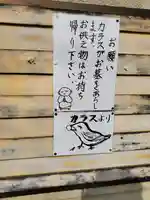 お願い
カラスがお墓をあらし
ます。
お供え物はお持ち
帰り下さい。
カラスより